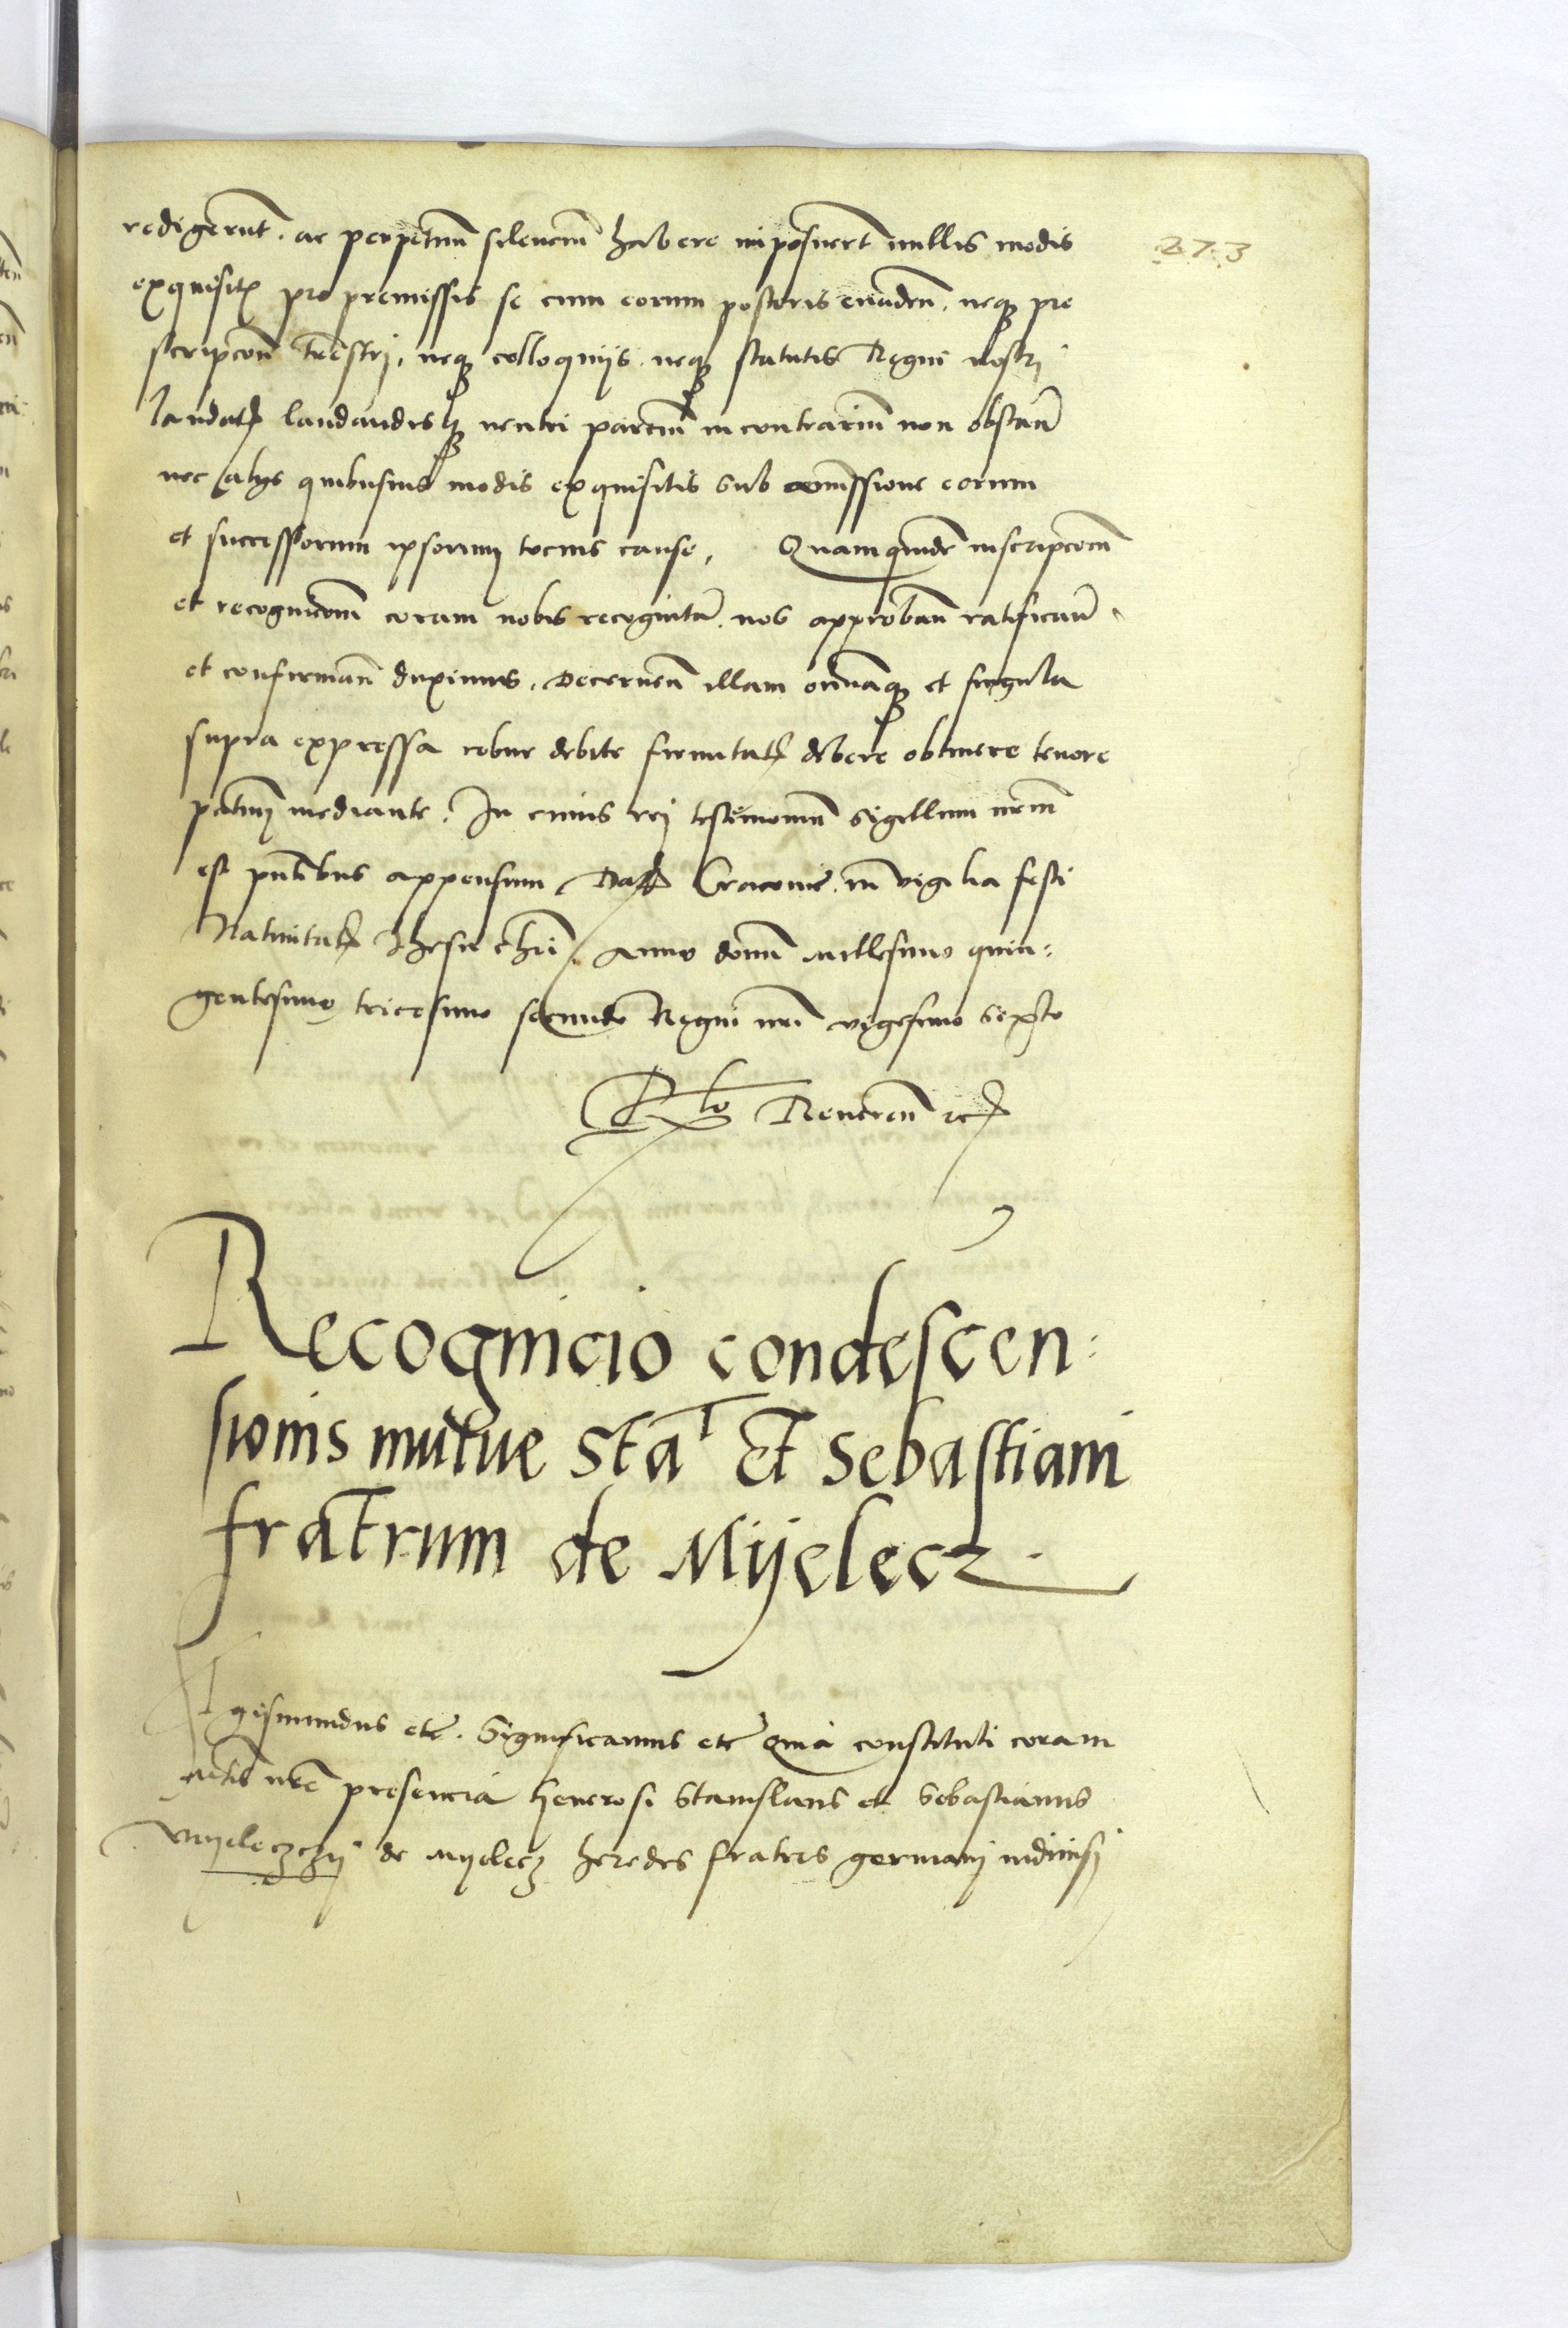 273
redigerunt. ac perpetuum silencium habere imposuerunt nullis modis
exquisitis pro premissis se cum eorum posteris evadendo. neque pre
scripcone terrestri, neque colloquijs neque statutis Regni nostri
laudatis laudandisque neutri parcium in contrarium non obstante
nec alijs quibusvis modis exquisitis sub amissione eorum
et successorum ipsorum tocius cause, Quamquidem inscripcionem
et recognicionem coram nobis recognitam. nos approbandam ratificandam
et confirmandam duximus, Decernentes illam omniaque et singula
supra expressa robur debite firmitatis debere obtinere tenore
presentium mediante. In cuius rei testimonium sigillum nostrum
est presentibus appensum Datum Cracovie in vigilia festi
Nativitatis Jhesu christi. Anno domini Millesimo quin:
gentesimo tricesimo secundo Regni nostri vigesimo sexto
Reverendi etc
Recognicio condescen:
sionis mutue Sta et Sebastiani
fratrum de Mijelecz.
Sigismundus etc. Significamus etc Quia constituti coram
actis nostre presencia Generosi Stanislaus et Sebastianus
Myeleczczij de Myelecz heredes fratres germani indivisi